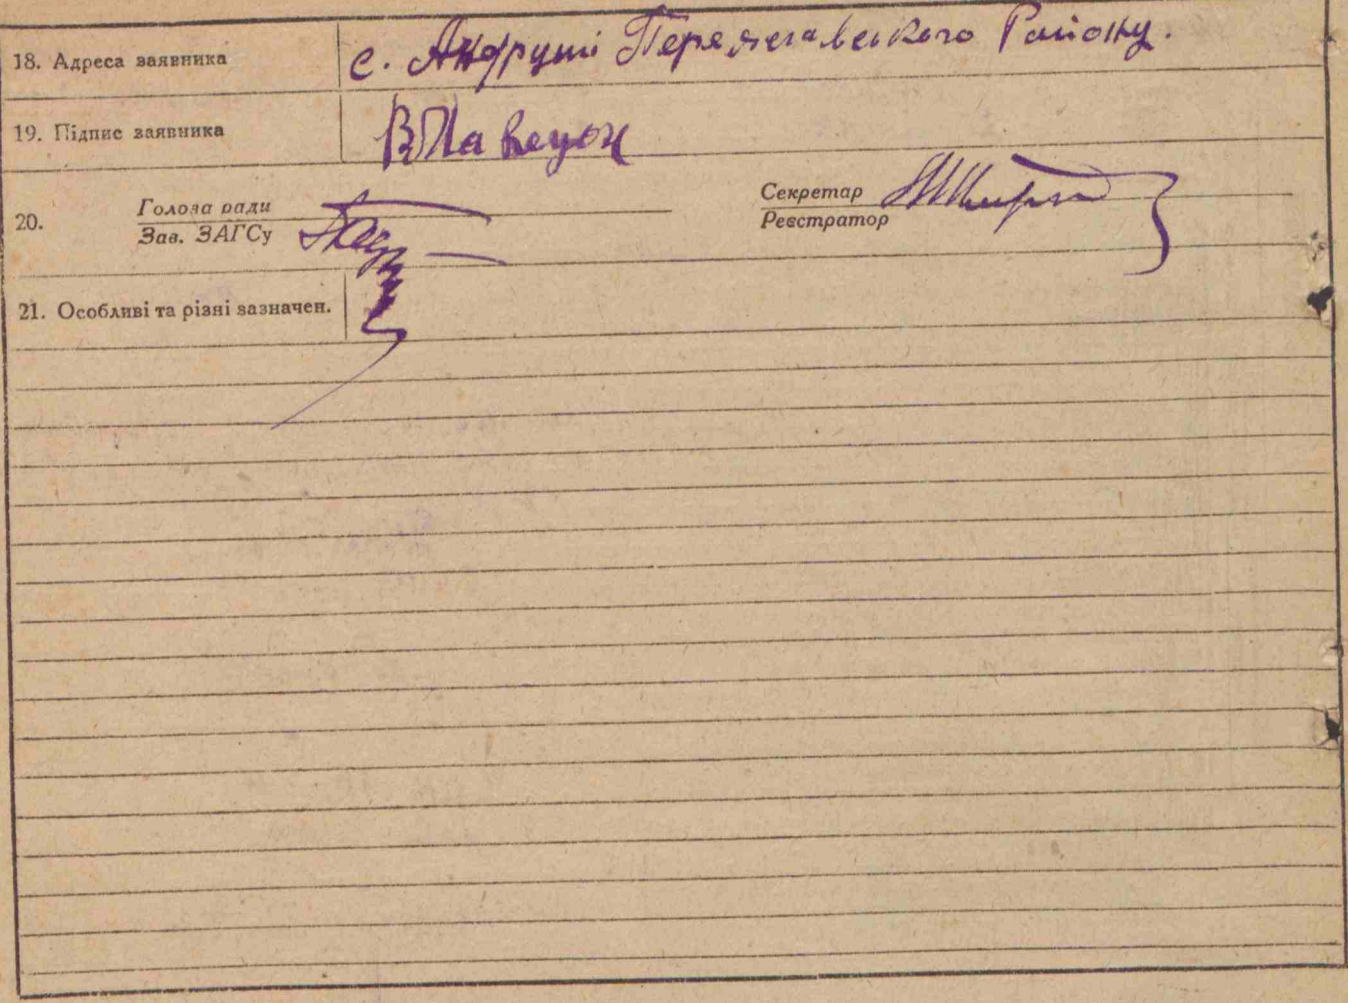 18. Адреса заявника с. Андруші Переяславського Району.
19. Підпис заявника
20. Голова ради Секретар
Зав. ЗАГСу Реєстратор
21. Особливі та різні зазначен.